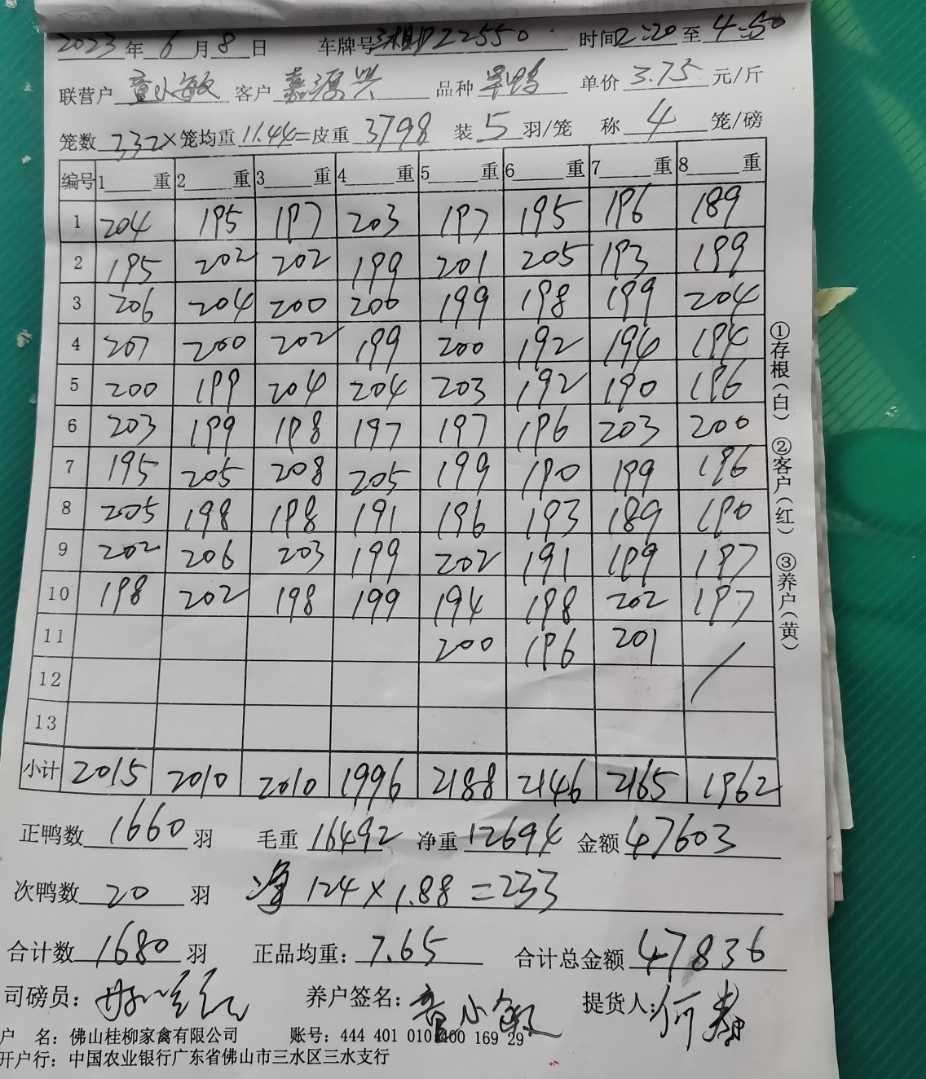 2023年6月8日 车牌号 22550 时间2:20至4:50
联营户 童小敏 客户 嘉源兴 品种 单价 3.75 元/斤
笼数 332×笼均重 11.44=皮重 3798 装 5 羽/笼 称 4 笼/磅
编号 1 重 2 重 3 重 4 重 5 重 6 重 7 重 8 重
1 204 195 197 203 197 195 196 189
2 195 202 202 199 201 205 193 199
3 206 204 200 200 199 198 199 204
4 207 200 202 199 200 192 194 194
5 200 199 204 204 203 192 190 196
6 203 199 198 197 197 196 203 200
7 195 205 208 205 199 190 199 196
8 205 198 198 191 196 193 189 190
9 202 206 203 199 202 191 199 197
10 198 202 198 199 194 198 202 197
11 200 196 201 /
12
13
小计 2015 2010 2010 1996 2188 2146 2165 1962
正鸭数 1660 羽 毛重 16492 净重 12694 金额 47603
次鸭数 20 羽 净 124×1.88=233
合计数 1680 羽 正品均重: 7.65 合计总金额 47836
司磅员: 养户签名: 童小敏 提货人: 何
户 名: 佛山桂柳家禽有限公司 账号: 444 401 010 400 169 29
开户行: 中国农业银行广东省佛山市三水区三水支行
①存根(白) ②客户(红) ③养户(黄)